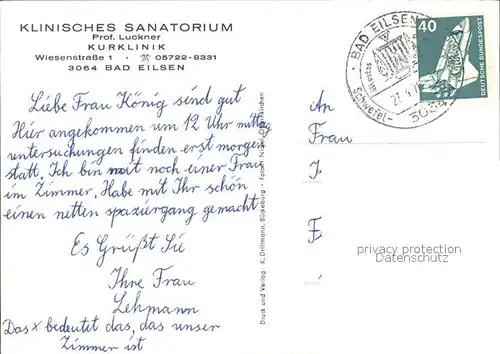 KLINISCHES SANATORIUM
Prof. Luckner
KURKLINIK
Wiesenstraße 1 · ☎ 05722-8331
3064 BAD EILSEN
Liebe Frau König sind gut
Hier angekommen um 12 Uhr mittag
untersuchungen finden erst morgen
statt. Ich bin mit noch einer Frau
im Zimmer. Habe mit Ihr schön
einen netten spaziergang gemacht
Es Grüßt Sie
Ihre Frau
Lehmann
Das x bedeutet das, das unser
Zimmer ist
Druck und Verlag K. Driftmann, Bückeburg - Fotos:
BAD EILSEN
Schwefel-
3064
40
DEUTSCHE BUNDESPOST
An
Frau
J.
E
privacy protection
Datenschutz